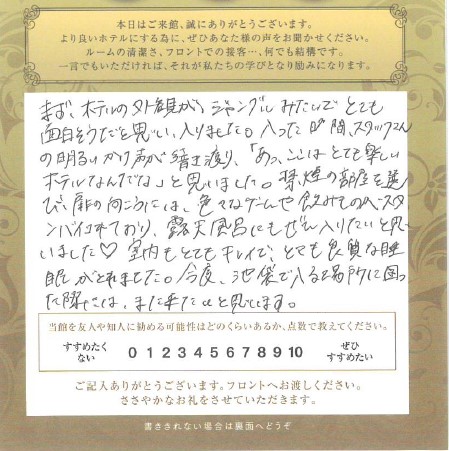 本日はご来館、誠にありがとうございます。
より良いホテルにする為に、ぜひあなた様の声をお聞かせください。
ルームの清潔さ、フロントでの接客…、何でも結構です。
一言でもいただければ、それが私たちの学びとなり励みになります。
まず、ホテルの外観がジャングルみたいでとても
面白そうだと思い、入りました。入った瞬間、スタッフさん
の明るいかけ声が響き渡り、「あっ、ここはとても楽しい
ホテルなんだな」と思いました。禁煙の部屋を選
び、扉の向こうには、色々なゲームや飲みもの
バイされており、露天風呂にもぜひ入りたいと思
いました♡ 室内もとてもキレイで、とても良質な睡
眠がとれました。今度、池袋で入る場所に困っ
た際には、また来たいと思います。
当館を友人や知人に勧める可能性はどのくらいあるか、点数で教えてください。
すすめたくない 0 1 2 3 4 5 6 7 8 9 10 ぜひすすめたい
ご記入ありがとうございます。フロントへお渡しください。
ささやかなお礼をさせていただきます。
書ききれない場合は裏面へどうぞ